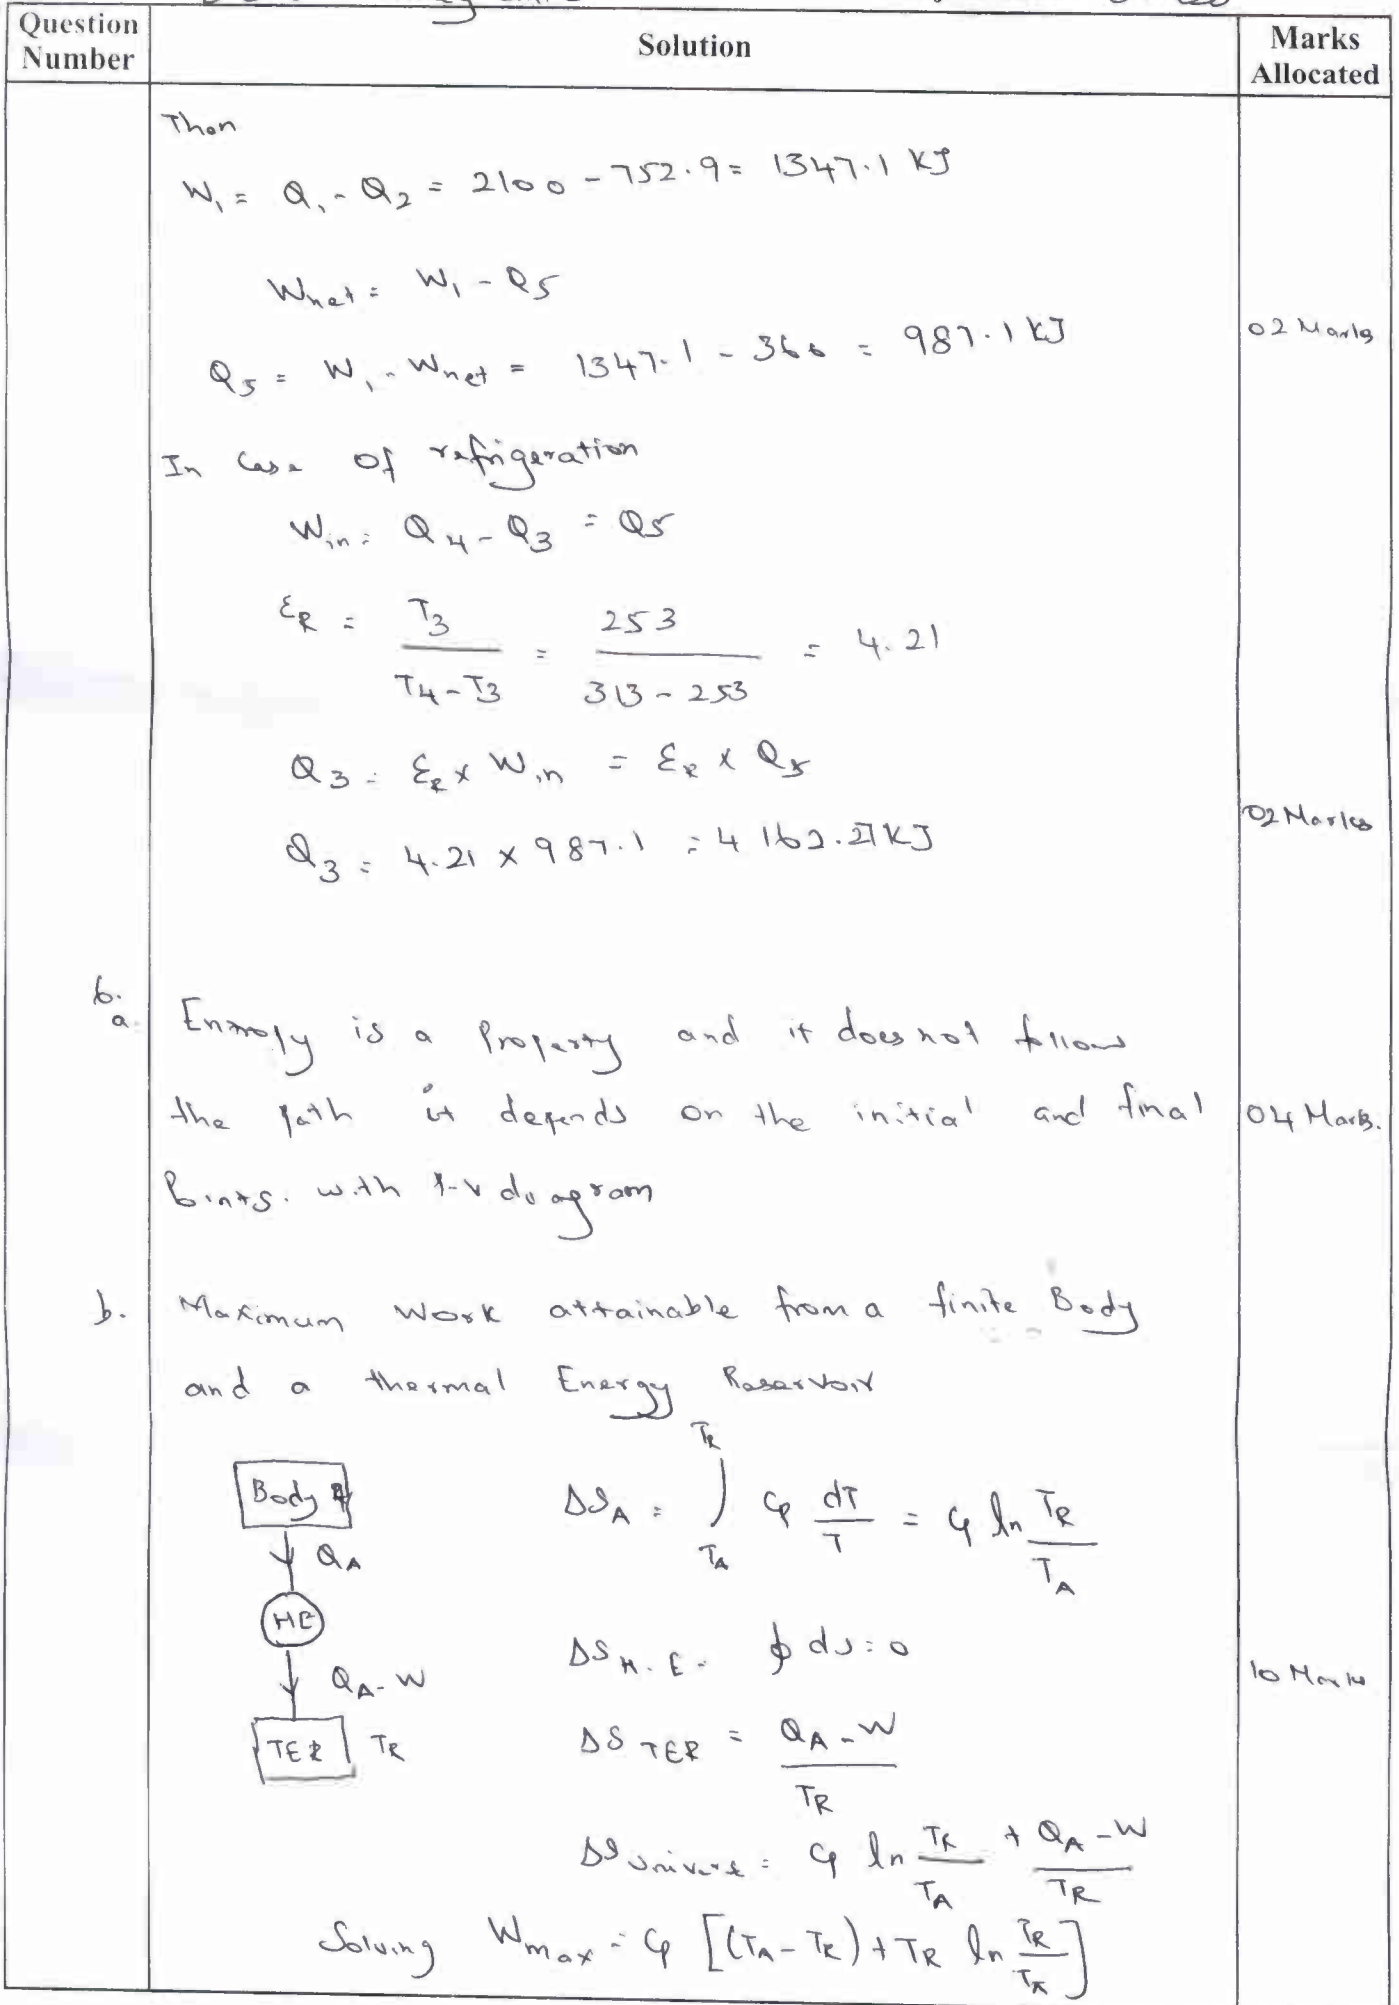 Question Number | Solution | Marks Allocated
Then
W₁ = Q₁ - Q₂ = 2100 - 752.9 = 1347.1 KJ
Wnet = W₁ - Q5
Q5 = W₁ - Wnet = 1347.1 - 360 = 987.1 KJ | 02 Marks
In case of refrigeration
Win = Q4 - Q3 = Q5
ƐR = T3 / (T4 - T3) = 253 / (313 - 253) = 4.21
Q3 = ƐR x Win = ƐR x Q5
Q3 = 4.21 x 987.1 = 4162.27 KJ | 02 Marks
6.
a. Entropy is a Property and it does not follow
the path it depends on the initial and final | 04 Marks.
Points. with P-V diagram
b. Maximum Work attainable from a finite Body
and a thermal Energy Reservoir
Body A
QA
HE
QA - W
TER TR
ΔSA = ∫ TA TR Cp dT/T = Cp ln TR/TA
ΔS H.E = ∮ ds = 0 | 10 Marks
ΔS TER = (QA - W) / TR
ΔS Universe = Cp ln TR/TA + (QA - W)/TR
Solving Wmax = Cp [(TA - TR) + TR ln TR/TA]